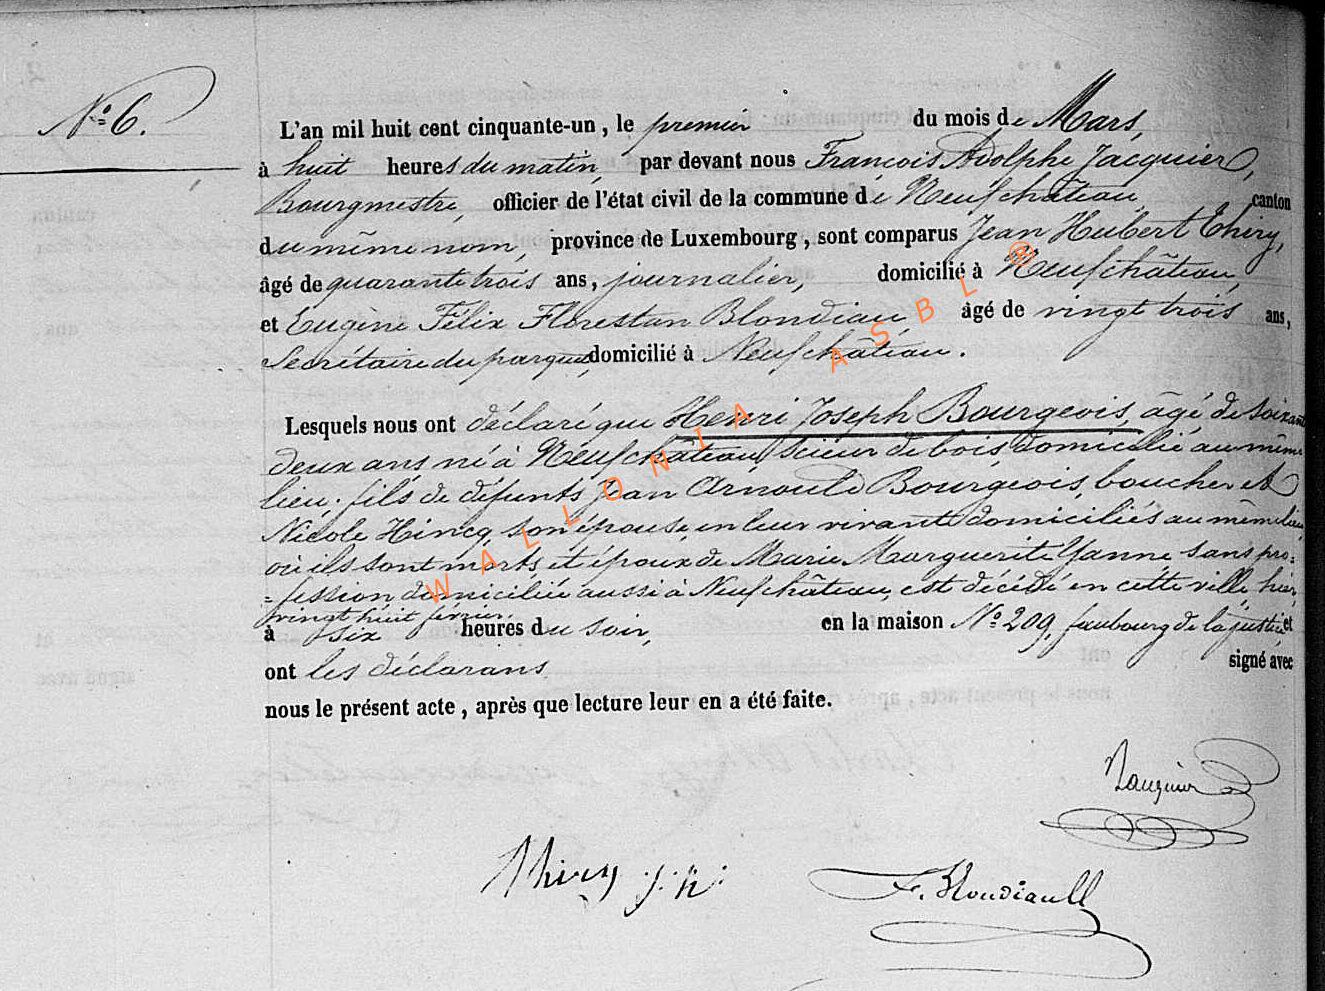 N° 6.
L'an mil huit cent cinquante-un, le premier du mois de Mars,
à huit heures du matin, par devant nous François Adolphe Jacquier,
Bourgmestre, officier de l'état civil de la commune de Neufchâteau, canton
du même nom, province de Luxembourg, sont comparus Jean Hubert Thiry,
âgé de quarante trois ans, journalier, domicilié à Neufchâteau,
et Eugène Félix Florestan Blondiau âgé de vingt trois ans,
Secrétaire du parquet, domicilié à Neufchâteau.
Lesquels nous ont déclaré que Henri Joseph Bourgeois, âgé de soixante
deux ans né à Neufchâteau, scieur de bois, domicilié au même
lieu, fils de défunts Jean Arnould Bourgeois, boucher et
Nicole Hincq, son épouse, en leur vivant domiciliés au même lieu
où ils sont morts et époux de Marie Marguerite Yanne, sans pro=
=fession domiciliée aussi à Neufchâteau, est décédé en cette ville hier,
vingt huit février,
à six heures du soir, en la maison N° 209, faubourg de la justice et
ont les déclarans signé avec
nous le présent acte, après que lecture leur en a été faite.
Jacquier
Thiry j. h. F. Blondiau
WALLONIA ASBL ®